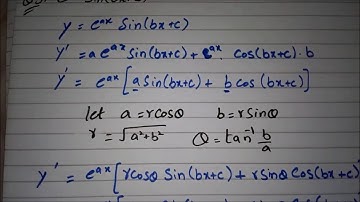 y = e^{ax} Sin(bx+c)
y' = a e^{ax} Sin(bx+c) + e^{ax}. Cos(bx+c).b
y' = e^{ax} [a Sin(bx+c) + b Cos (bx+c)]
let a = r Cosθ b = r Sinθ
r = √(a²+b²) θ = tan⁻¹ b/a
y' = e^{ax} [r Cosθ Sin(bx+c) + r Sinθ Cos(bx+c)